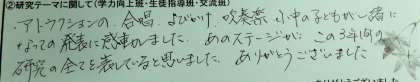 ②研究テーマに関して(学力向上班・生徒指導班・交流班)
・アトラクションの、合唱、よびかけ、吹奏楽、小中の子どもが一緒に
なっての発表に感動しました。あのステージが、この3年間の
研究の全てを表していると思いました。ありがとうございました